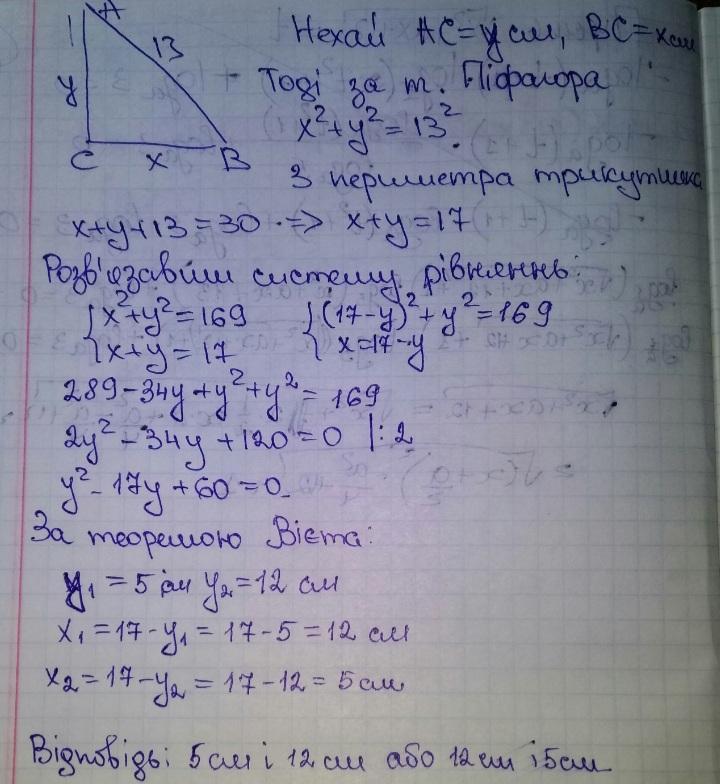 A
13
y
C x B
Нехай AC=y см, BC=x см
Тоді за т. Піфагора
x²+y²=13².
З периметра трикутника
x+y+13=30 => x+y=17
Розв'язавши систему рівнянь:
{x²+y²=169 {(17-y)²+y²=169
{x+y=17 {x=17-y
289-34y+y²+y²=169
2y²-34y+120=0 |:2
y²-17y+60=0
За теоремою Вієта:
y₁=5 см y₂=12 см
x₁=17-y₁=17-5=12 см
x₂=17-y₂=17-12=5 см
Відповідь: 5 см і 12 см або 12 см і 5 см